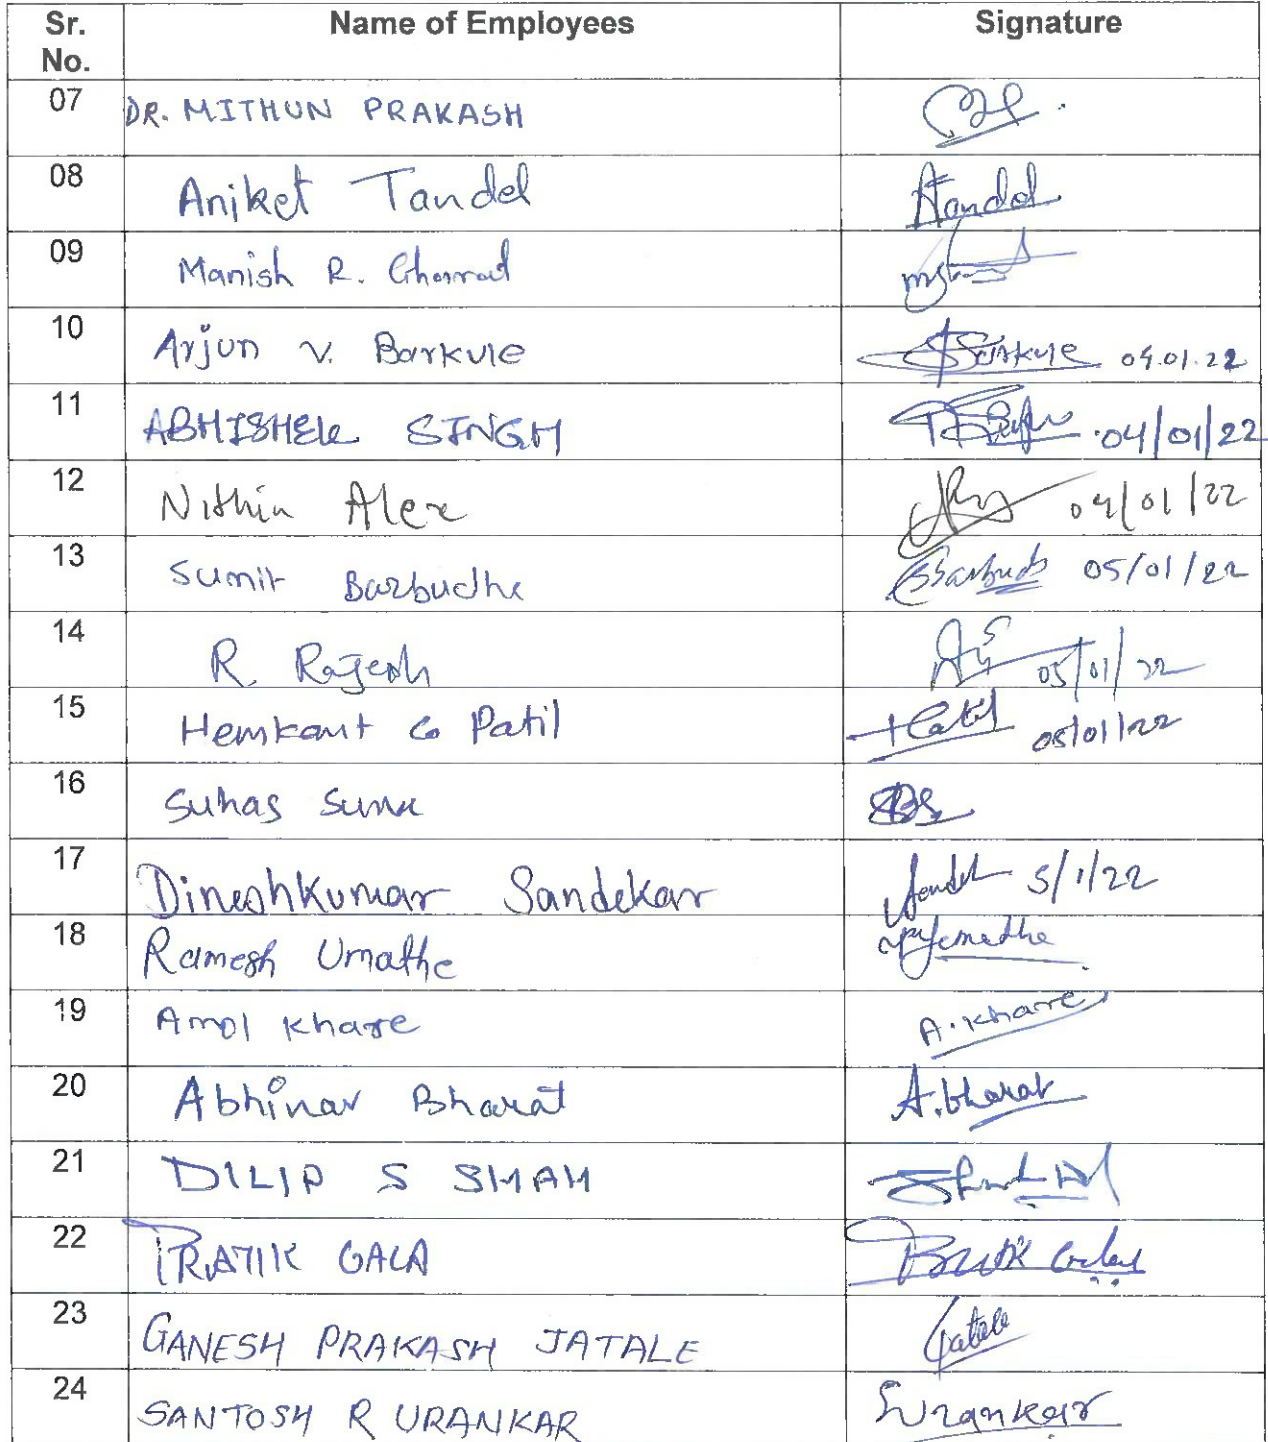 Sr. No. Name of Employees Signature
07 DR. MITHUN PRAKASH
08 Aniket Tandel Atandel
09 Manish R.
10 Arjun V. Barkule Barkule 04.01.22
11 ABHISHEK SINGH 04/01/22
12 Nithin Alex 04/01/22
13 Sumit Barbudhe 05/01/22
14 R. Rajesh 05/01/22
15 Hemkant G Patil HPatil 05/01/22
16 Suhas SBS
17 Dineshkumar Sandekar 5/1/22
18 Ramesh Umathe
19 Amol Khare A. Khare
20 Abhinav Bharat A. bharat
21 DILIP S SHAH
22 PRATIK GALA Pratik Gala
23 GANESH PRAKASH JATALE Jatale
24 SANTOSH R URANKAR Urankar